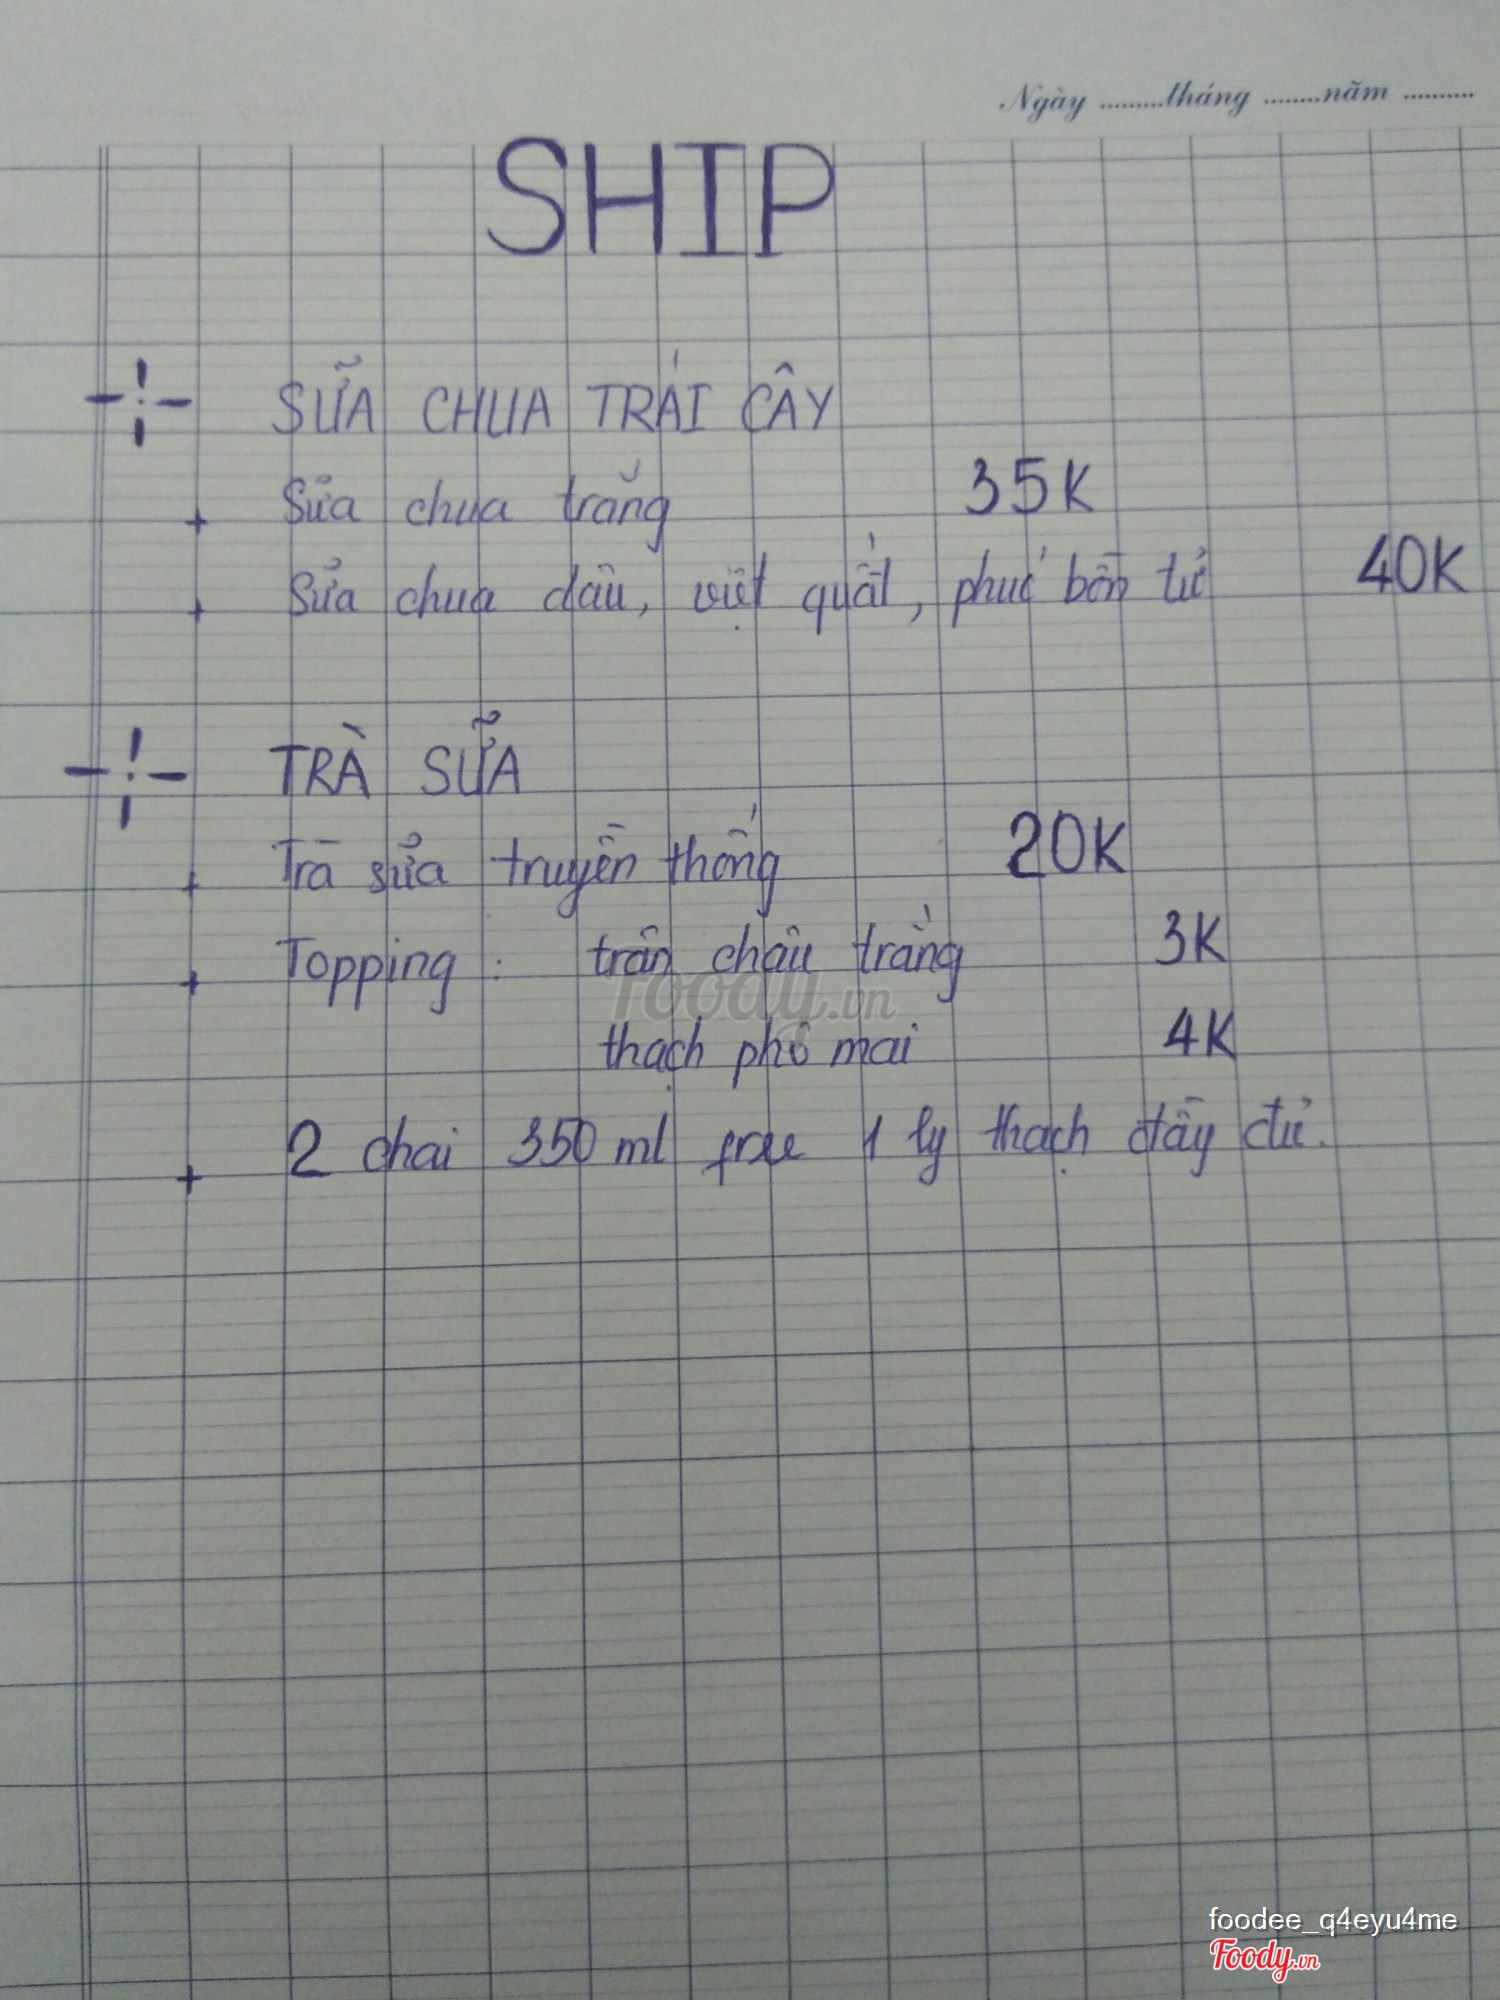 Ngày .........tháng ........năm ..........
SHIP
SỮA CHUA TRÁI CÂY
+ Sữa chua trắng 35K
+ Sữa chua dâu, việt quất, phúc bồn tử 40K
TRÀ SỮA
+ Trà sữa truyền thống 20K
+ Topping : trân châu trắng 3K
thạch phô mai 4K
+ 2 chai 350 ml free 1 ly thạch đầy đủ.
Foody.vn
foodee_q4eyu4me
Foody.vn